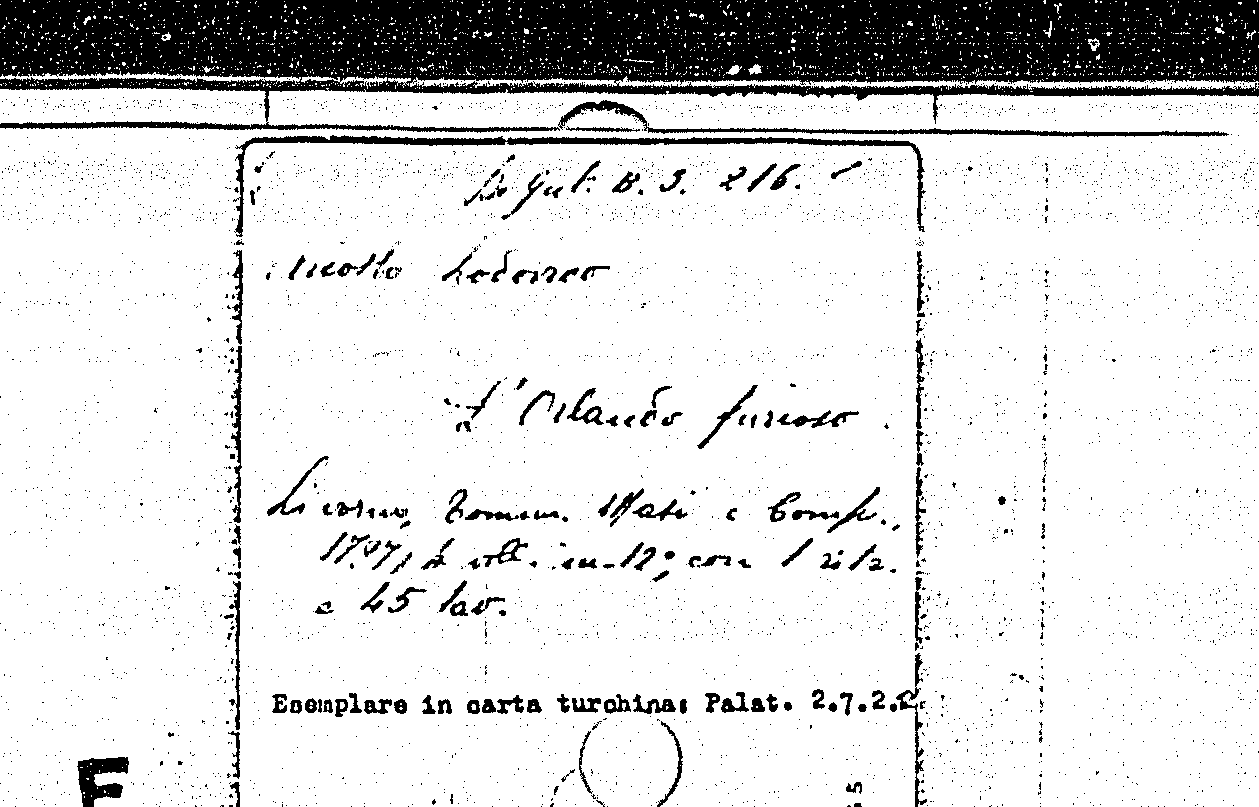 B. 3. 216.
Ariosto Lodovico
L'Orlando furioso.
Livorno, Tomm. Masi e Comp.,
1797, voll. in-12°, con 1 ritr.
e 45 tav.
Esemplare in carta turchina: Palat. 2.7.2.
E